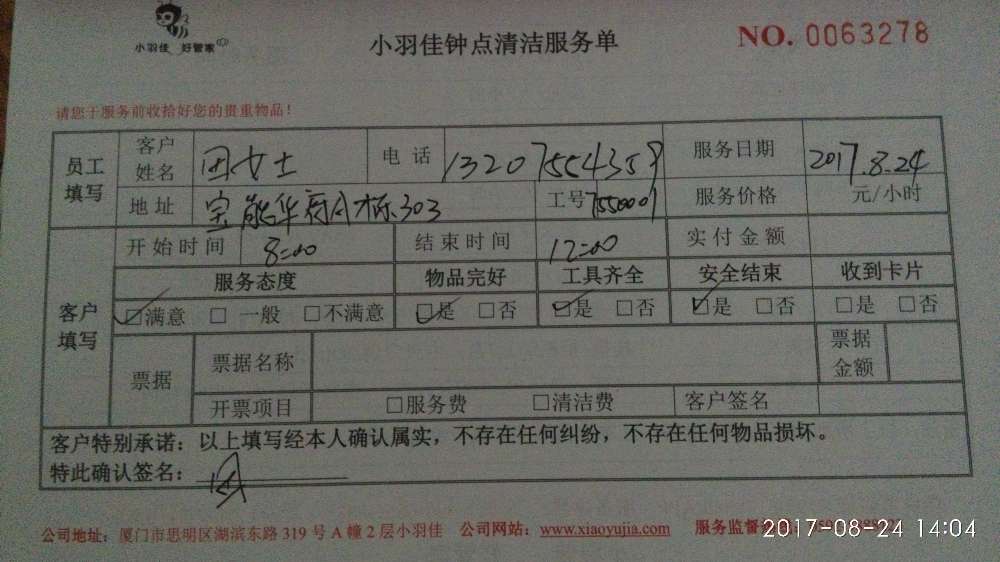 小羽佳 好管家
小羽佳钟点清洁服务单
NO. 0063278
请您于服务前收拾好您的贵重物品！
员工填写 客户姓名 女士 电话 13207554359 服务日期 2017.8.24
地址 宝能华府A栋303 工号 7550009 服务价格 元/小时
客户填写 开始时间 8:00 结束时间 12:00 实付金额
服务态度 物品完好 工具齐全 安全结束 收到卡片
☑满意 □一般 □不满意 ☑是 □否 ☑是 □否 ☑是 □否 □是 □否
票据 票据名称 票据金额
开票项目 □服务费 □清洁费 客户签名
客户特别承诺：以上填写经本人确认属实，不存在任何纠纷，不存在任何物品损坏。
特此确认签名：
公司地址：厦门市思明区湖滨东路 319 号 A 幢 2 层小羽佳 公司网站：www.xiaoyujia.com 服务监督
2017-08-24 14:04